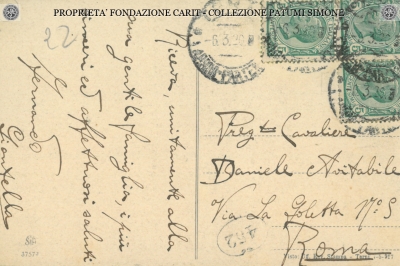 PROPRIETA' FONDAZIONE CARIT - COLLEZIONE PATUMI SIMONE
22
Riceva, unitamente alla
sua gentile famiglia, i più
sinceri ed affettuosi saluti
Fernando
-6.3.
Preg.mo Cavaliere
Daniele Avitabile
Via La Goletta N° 5
Roma